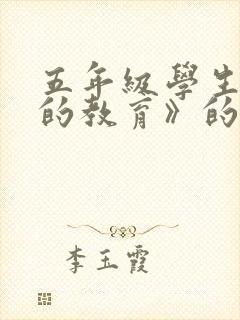 五年級學生
的教育》的
李玉霞